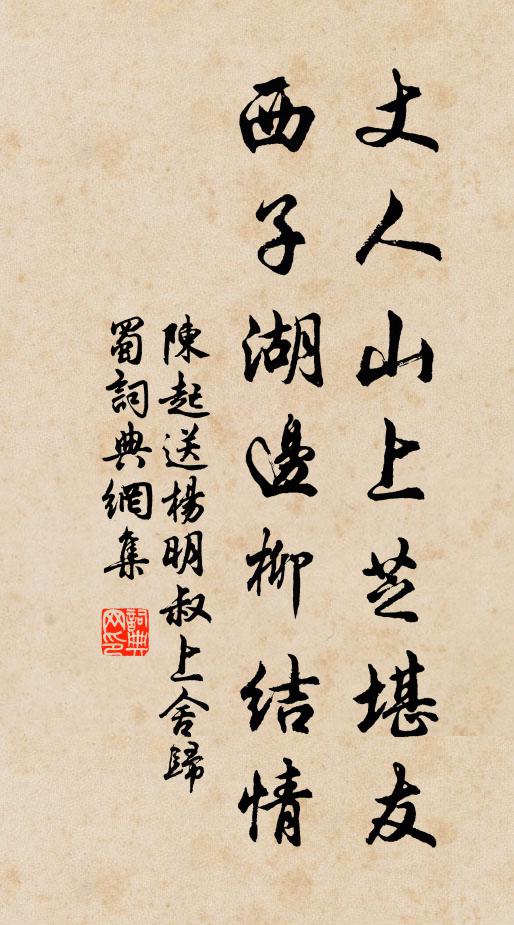 丈人山上芝堪友
西子湖邊柳結情
陳起送楊明叔上舍歸
蜀詞典網集
詞典網印